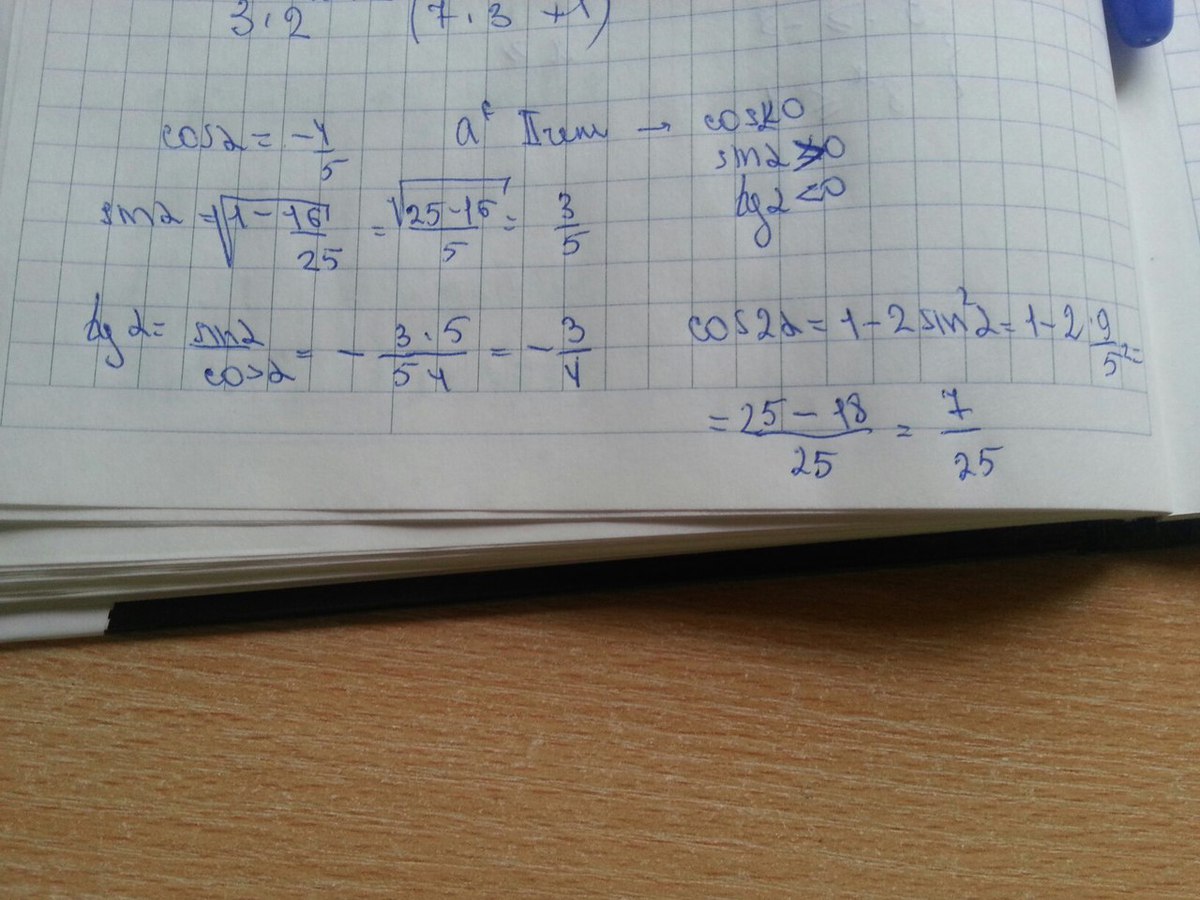 3·2 (7·3 +1)
cosα = -4/5 α ∈ II чет → cosα<0
sinα>0
tgα<0
sinα = √(1 - 16/25) = √(25-16)/5 = 3/5
tgα = sinα/cosα = - 3·5/5 4 = - 3/4
cos2α = 1 - 2 sin²α = 1 - 2·9/5² =
= 25 - 18/25 = 7/25